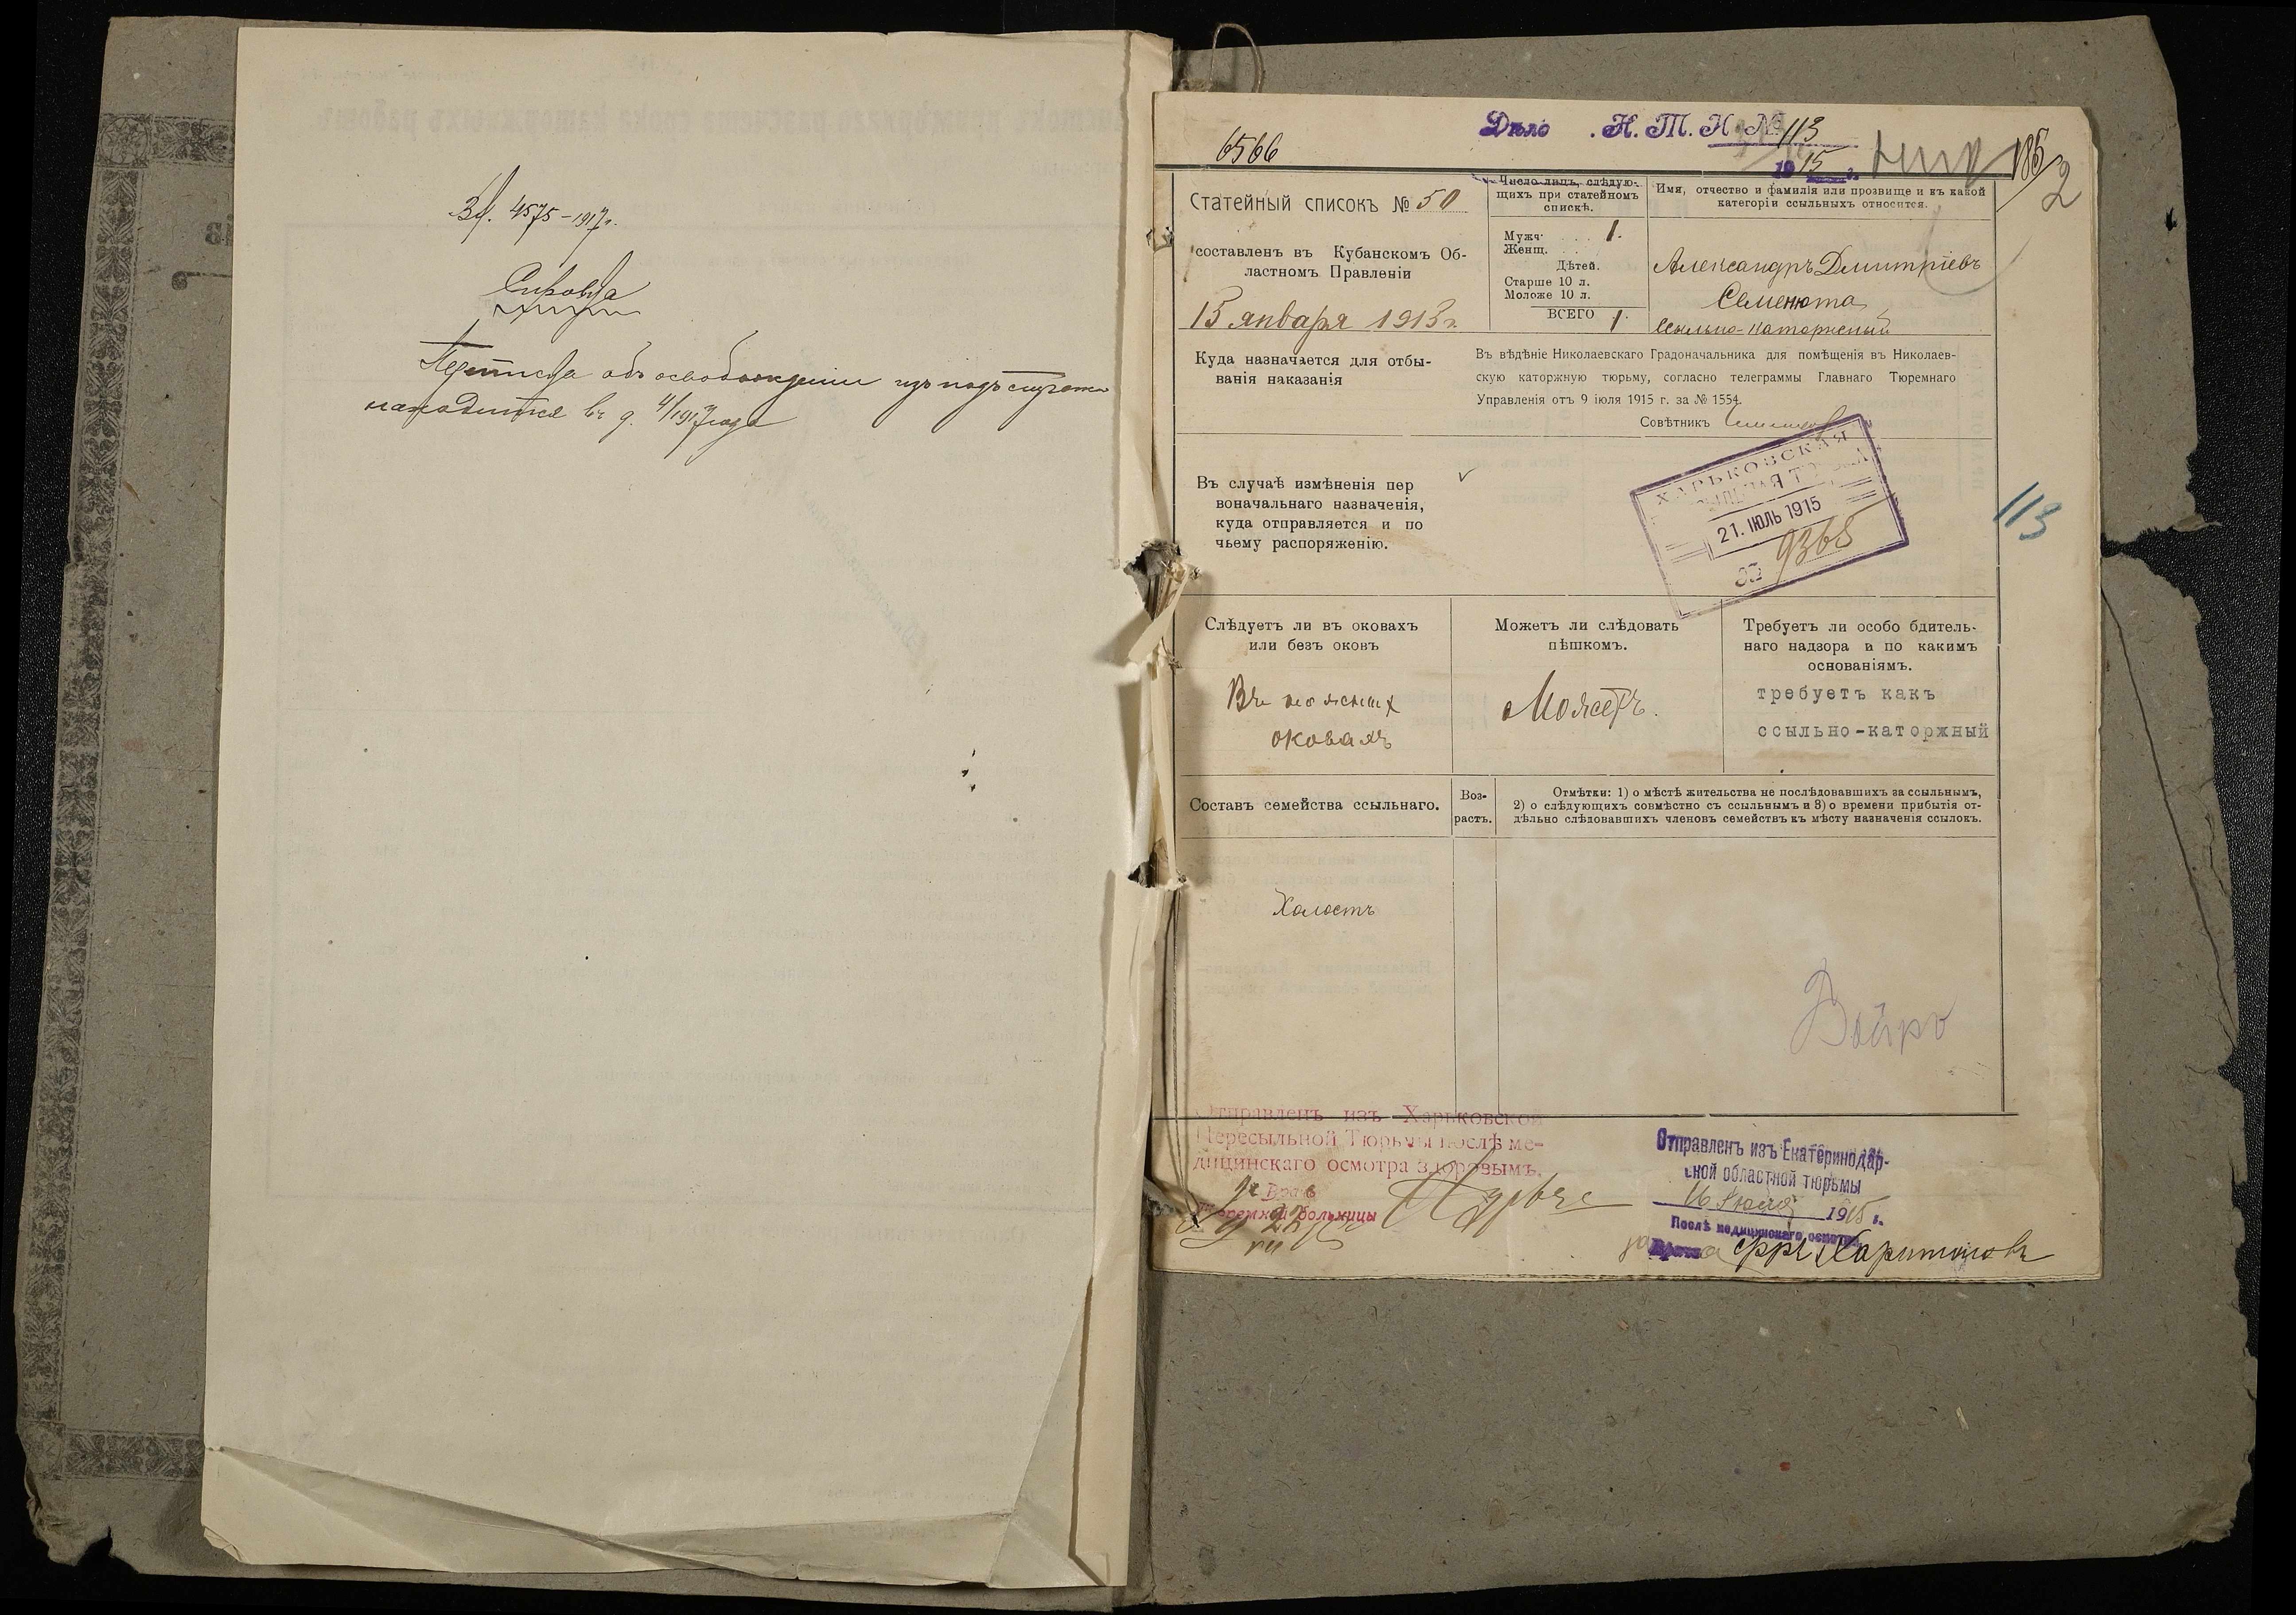 Вх. 4575 – 1917 г.
Справка
Переписка объ освобожденіи изъ подъ стражи
находится въ д. 4/1917 года
6566
Дѣло Н. Т. Н. № 113
1915 г.
186
2
Статейный списокъ № 50
составленъ въ Кубанскомъ Об-
ластномъ Правленіи
15 января 1913 г.
Число лицъ, слѣдую-
щихъ при статейномъ
спискѣ.
Мужч. . . . 1.
Женщ. . . .
Дѣтей.
Старше 10 л.
Моложе 10 л.
ВСЕГО 1.
Имя, отчество и фамилія или прозвище и къ какой
категоріи ссыльныхъ относится.
Александръ Дмитріевъ
Семенюта
ссыльно-каторжный
Куда назначается для отбы-
ванія наказанія
Въ вѣдѣніе Николаевскаго Градоначальника для помѣщенія въ Николаев-
скую каторжную тюрьму, согласно телеграммы Главнаго Тюремнаго
Управленія отъ 9 іюля 1915 г. за № 1554.
Совѣтникъ
Въ случаѣ измѣненія пер
воначальнаго назначенія,
куда отправляется и по
чьему распоряженію.
ХАРЬКОВСКАЯ
21. ІЮЛЬ 1915
9365
113
Слѣдуетъ ли въ оковахъ
или безъ оковъ
Въ ножныхъ
оковахъ
Можетъ ли слѣдовать
пѣшкомъ.
Можетъ.
Требуетъ ли особо бдитель-
наго надзора и по какимъ
основаніямъ.
требуетъ какъ
ссыльно-каторжный
Составъ семейства ссыльнаго.
Воз-
растъ.
Отмѣтки: 1) о мѣстѣ жительства не послѣдовавшихъ за ссыльнымъ,
2) о слѣдующихъ совмѣстно съ ссыльнымъ и 3) о времени прибытія от-
дѣльно слѣдовавшихъ членовъ семействъ къ мѣсту назначенія ссылокъ.
Холостъ
Отправленъ изъ Харьковской
Пересыльной Тюрьмы послѣ ме-
дицинскаго осмотра здоровымъ.
Врачъ
Тюремной больницы
Отправленъ изъ Екатеринодар-
ской областной тюрьмы
16 Іюля 1915 г.
Послѣ медицинскаго осмотра
за Врача фрш. Харитоновъ